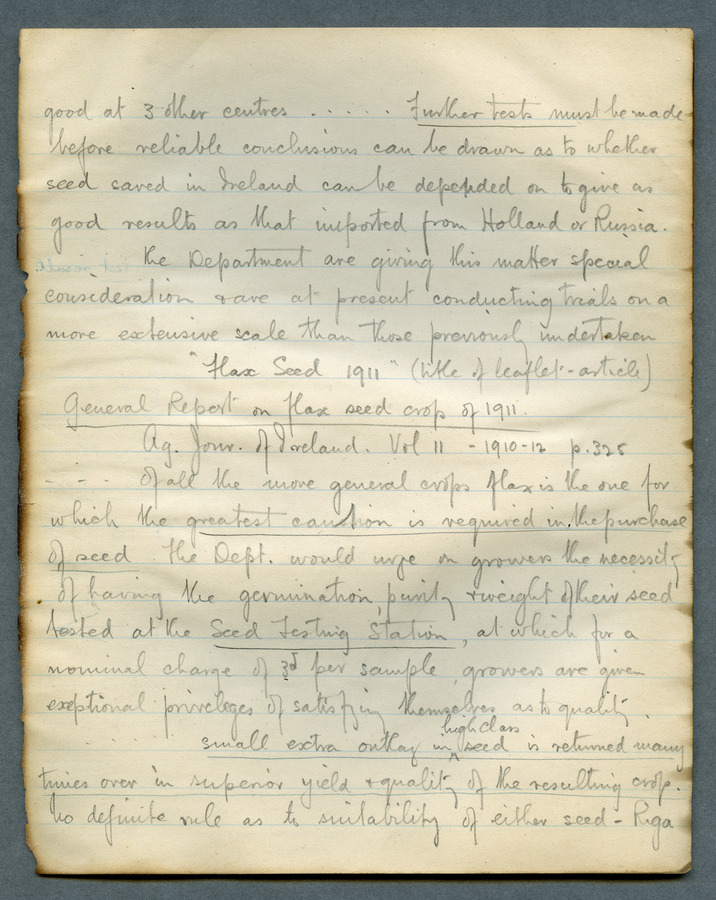 good at 3 other centres . . . . . . Further tests must be made
before reliable conclusions can be drawn as to whether
seed saved in Ireland can be depended on to give as
good results as that imported from Holland or Russia.
The Department are giving this matter special
consideration & are at present conducting trials on a
more extensive scale than those previously undertaken
"Flax Seed 1911" (title of leaflet-article)
General Report on flax seed crop of 1911.
Ag. Jour. of Ireland. Vol 11 - 1910-12 p. 325
- - - Of all the more general crops flax is the one for
which the greatest caution is required in the purchase
of seed The Dept. would urge on growers the necessity
of having the germination, purity & weight of their seed
tested at the Seed Testing Station, at which for a
nominal charge of 3d per sample, growers are given
exeptional priveleges of satisfying themselves as to quality.
. . . . . . small extra outlay in high class seed is returned many
times over in superior yield & quality of the resulting crop.
No definite rule as to suitability of either seed - Riga